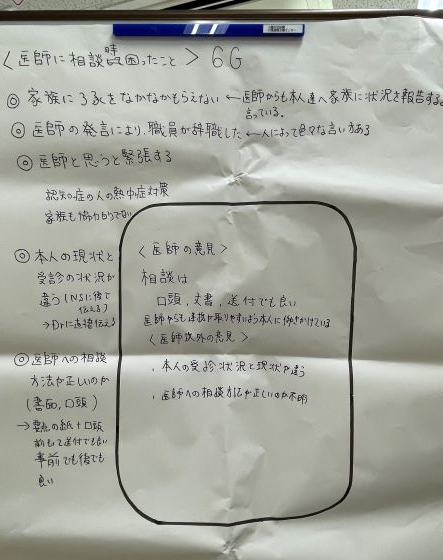 〈医師に相談時困ったこと〉 6G
◎ 家族に了承をなかなかもらえない ← 医師からも本人達へ家族に状況を報告すると
言っている。
◎ 医師の発言により、職員が辞職した ← 人によって色々な言い方ある
◎ 医師と思うと緊張する
認知症の人の熱中症対策
家族も協力的でない
◎ 本人の現状と
受診の状況が
違う(NSに後で
伝える)
→Drに直接伝える
◎ 医師への相談
方法が正しいのか
(書面、口頭)
→ 要点の紙+口頭
前もって送付でも良い
事前でも後でも
良い
〈医師の意見〉
相談は
口頭、文書、送付でも良い
医師からも連携が取りやすいよう本人に働きかけている
〈医師以外の意見〉
・本人の受診状況と現状が違う
・医師への相談方法が正しいのか不明